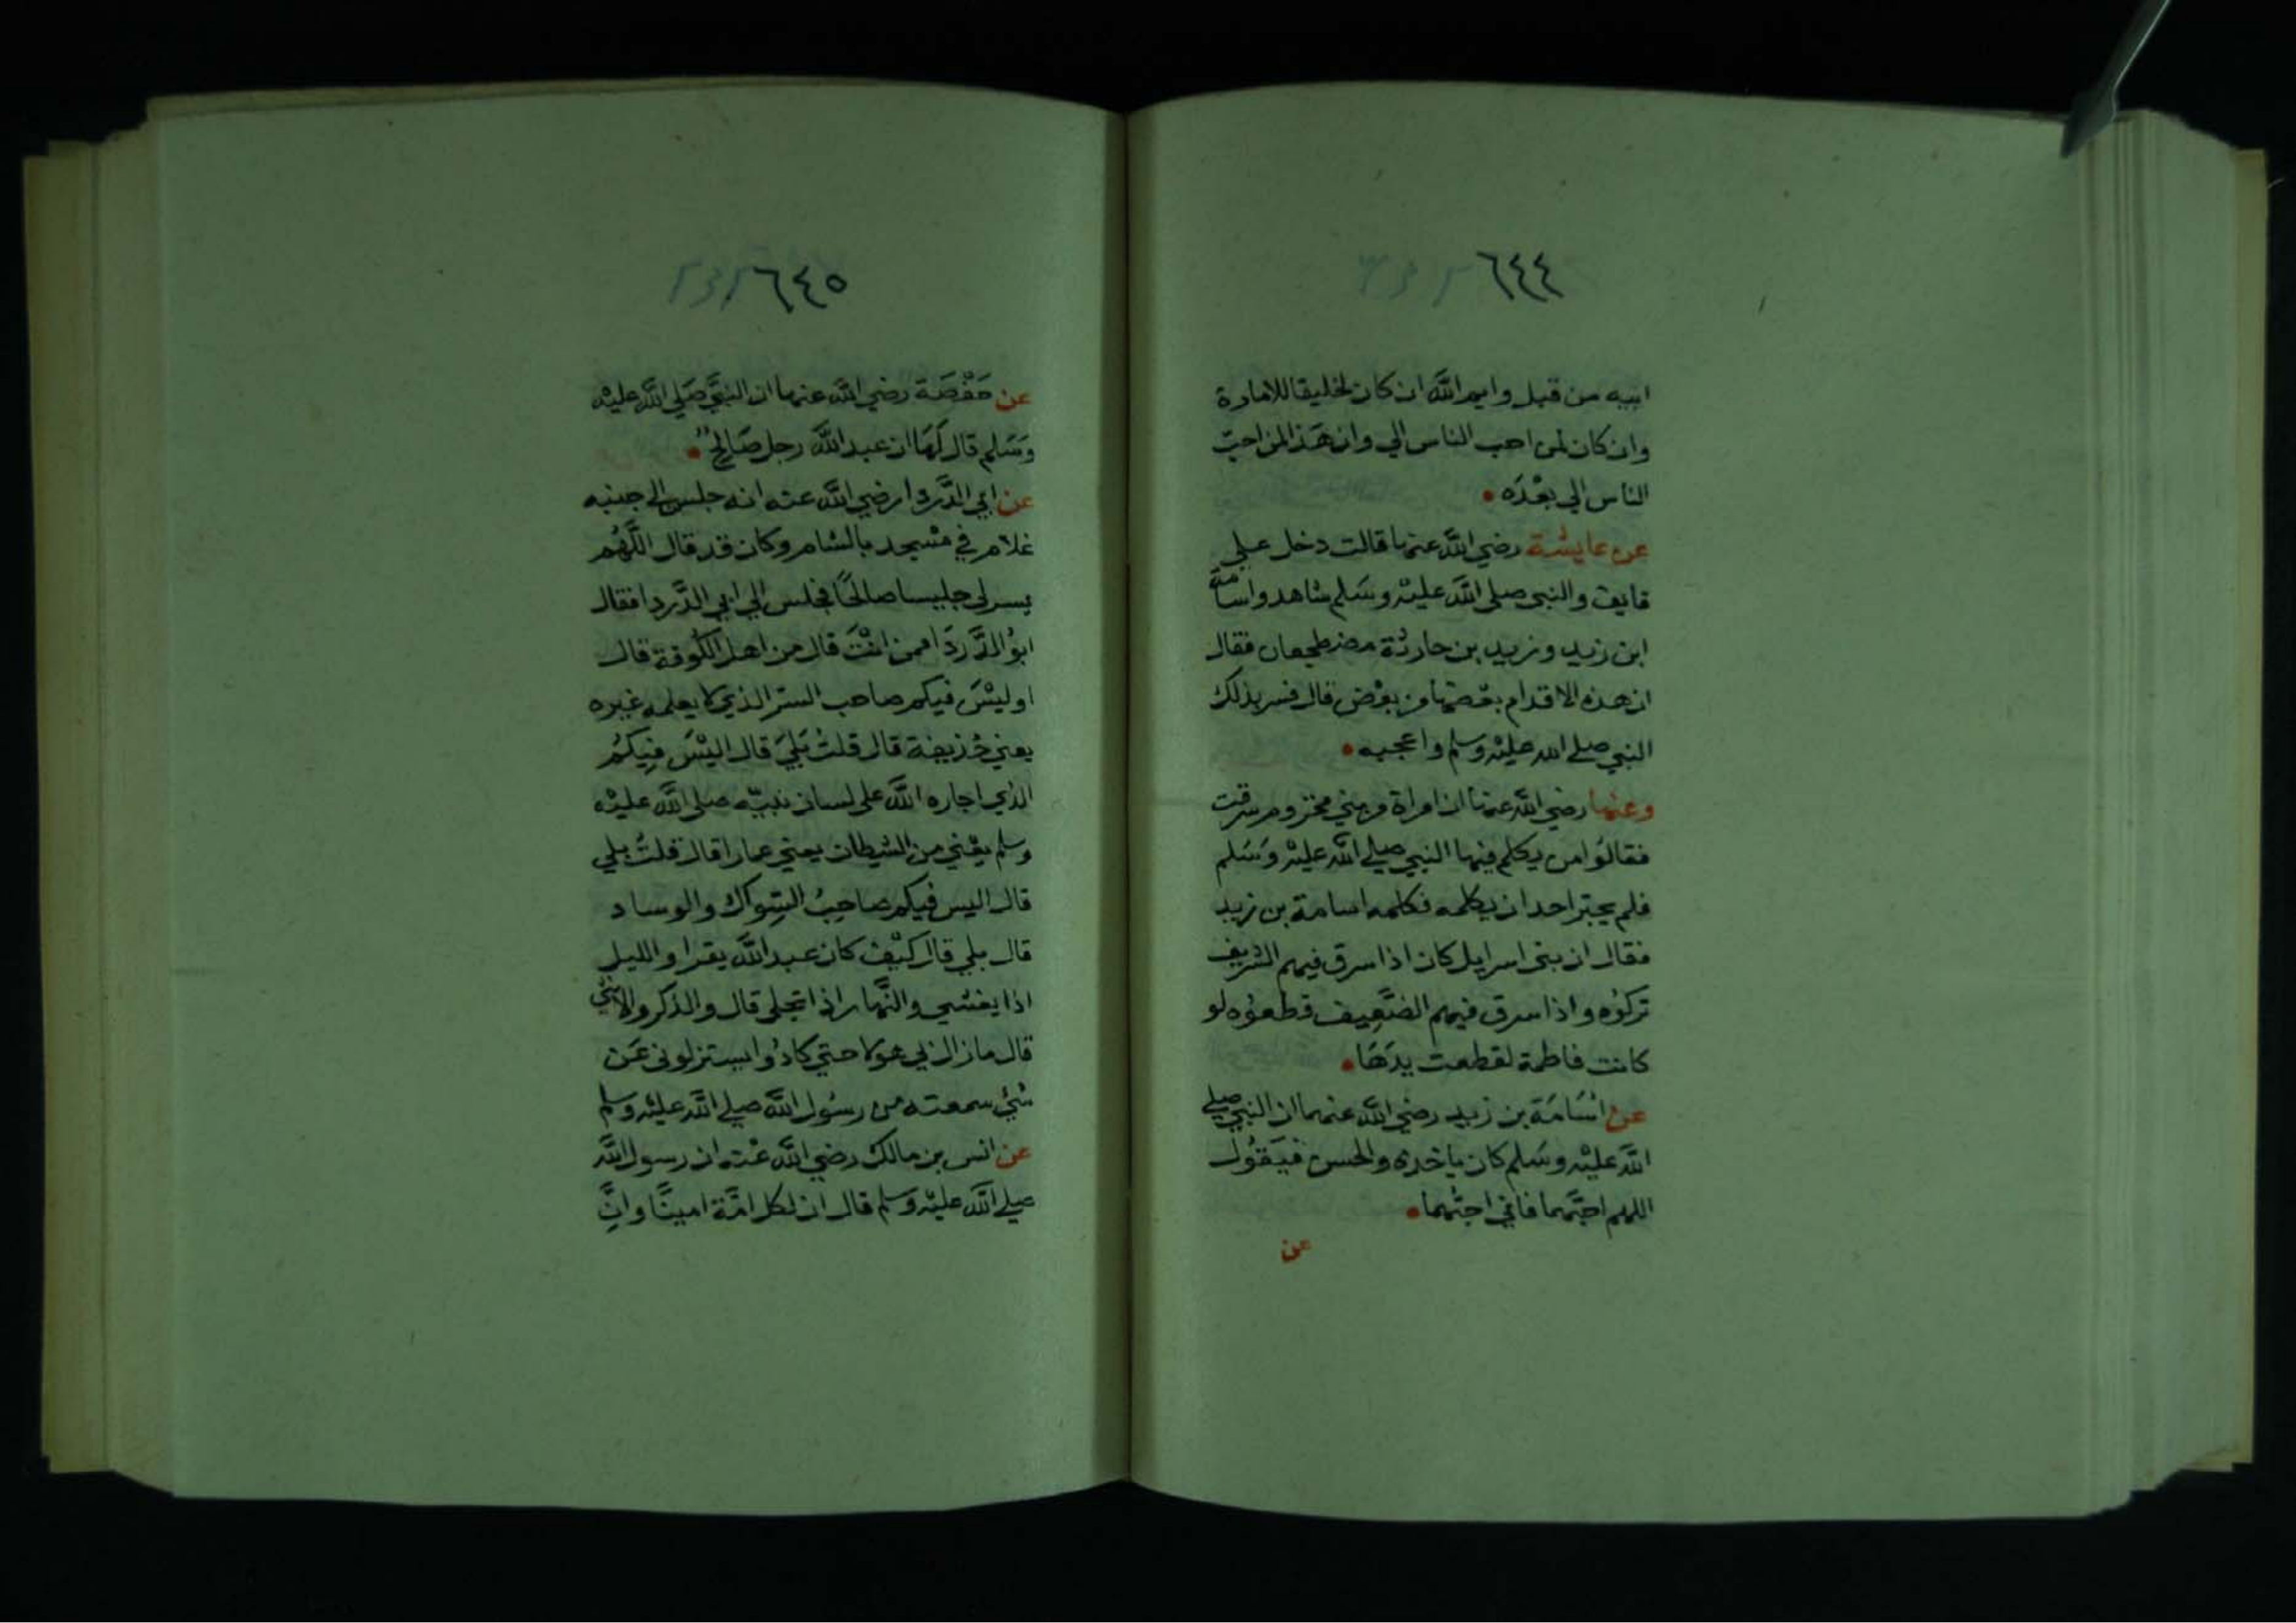 ٦٤٤
ابيه من قبل وايم الله ان كان لخليقا للامارة
وان كان لمن احب الناس الي وان هذا لمن احب
الناس الي بعده
عن عايشة رضي الله عنها قالت دخل علي
قايف والنبي صلى الله عليه وسلم شاهد واسامة
ابن زيد وزيد بن حارثة مضطجعان فقال
ان هذه الاقدام بعضها من بعض قال فسر بذلك
النبي صلى الله عليه وسلم واعجبه
وعنها رضي الله عنها ان امراة من بني مخزوم سرقت
فقالوا من يكلم فيها النبي صلى الله عليه وسلم
فلم يجتر احد ان يكلمه فكلمه اسامة بن زيد
فقال ان بني اسرايل كان اذا سرق فيهم الشريف
تركوه واذا سرق فيهم الضعيف قطعوه لو
كانت فاطمة لقطعت يدها
عن اسامة بن زيد رضي الله عنهما ان النبي صلى
الله عليه وسلم كان ياخذه والحسن فيقول
اللهم احبهما فاني احبهما
عن
٦٤٥
عن حفصة رضي الله عنها ان النبي صلى الله عليه
وسلم قال لها ان عبد الله رجل صالح
عن ابي الدردا رضي الله عنه انه جلس الى جنبه
غلام في مسجد بالشام وكان قد قال اللهم
يسر لي جليسا صالحا فجلس الي ابي الدردا فقال
ابو الدردا ممن انت قال من اهل الكوفة قال
اوليس فيكم صاحب السر الذي لا يعلمه غيره
يعني حذيفة قال قلت بلي قال اليس فيكم
الذي اجاره الله على لسان نبيه صلى الله عليه
وسلم يعني من الشيطان يعني عمارا قال قلت بلي
قال اليس فيكم صاحب السواك والوساد
قال بلي قال كيف كان عبد الله يقرا والليل
اذا يغشي والنهار اذا تجلى قال والذكر والانثى
قال ما زال بي هولا حتي كادوا يستنزلوني عن
شي سمعته من رسول الله صلى الله عليه وسلم
عن انس بن مالك رضي الله عنه ان رسول الله
صلى الله عليه وسلم قال ان لكل امة امينا وان